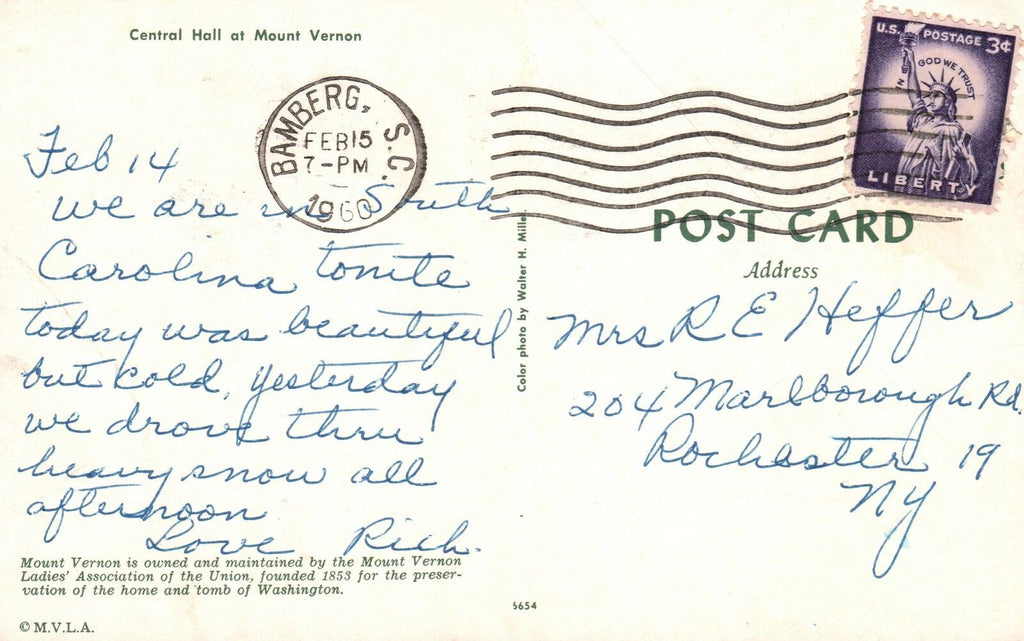 Central Hall at Mount Vernon
U.S. POSTAGE 3¢
IN GOD WE TRUST
LIBERTY
BAMBERG, S.C.
FEB 15
7-PM
1960
Feb 14
we are in South
Carolina tonite
today was beautiful
but cold, yesterday
we drove thru
heavy snow all
afternoon
Love Rich.
Mount Vernon is owned and maintained by the Mount Vernon
Ladies' Association of the Union, founded 1853 for the preser-
vation of the home and tomb of Washington.
© M.V.L.A.
Color photo by Walter H. Miller
5654
POST CARD
Address
Mrs R E Heffer
204 Marlborough Rd.
Rochester 19
NY